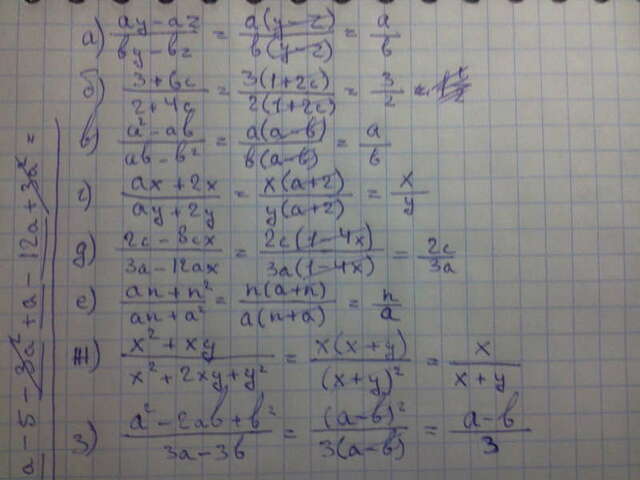 а) ay-az / by-bz = a(y-z) / b(y-z) = a/b
б) 3+6c / 2+4c = 3(1+2c) / 2(1+2c) = 3/2 =
в) a²-ab / ab-b² = a(a-b) / b(a-b) = a/b
г) ax+2x / ay+2y = x(a+2) / y(a+2) = x/y
д) 2c-8cx / 3a-12ax = 2c(1-4x) / 3a(1-4x) = 2c/3a
е) an+n² / an+a² = n(a+n) / a(n+a) = n/a
ж) x²+xy / x²+2xy+y² = x(x+y) / (x+y)² = x / x+y
з) a²-2ab+b² / 3a-3b = (a-b)² / 3(a-b) = a-b / 3
a-5-3a²+a-12a+3a² =